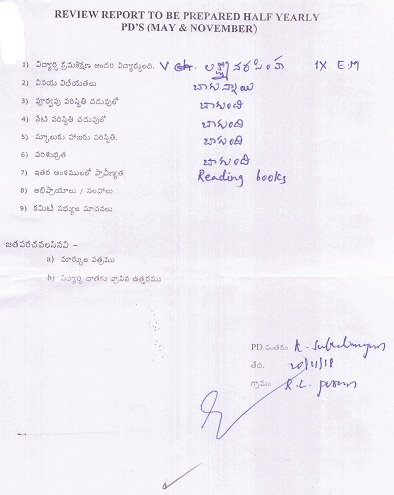 REVIEW REPORT TO BE PREPARED HALF YEARLY
PD'S (MAY & NOVEMBER)
1) విద్యార్థి క్రమశిక్షణ అందరి విద్యార్థులది. V Ch. లక్ష్మీనరసింహ IX E.M
2) వినయ విధేయతలు బాగున్నాయి
3) పూర్వపు పరిస్థితి చదువులో బాగుంది
4) నేటి పరిస్థితి చదువులో బాగుంది
5) స్కూలుకు హాజరు పరిస్థితి. బాగుంది
6) పరిశుభ్రత బాగుంది
7) ఇతర అంశములలో ప్రావీణ్యత Reading books
8) అభిప్రాయాలు / సలహాలు
9) కమిటీ సభ్యుల సూచనలు
జతపరచవలసినవి –
a) మార్కుల పత్రము
b) విద్యార్థి దాతకు వ్రాసిన ఉత్తరము
PD సంతకం. K.
తేది. 20/11/18
గ్రామం. R.L. puram